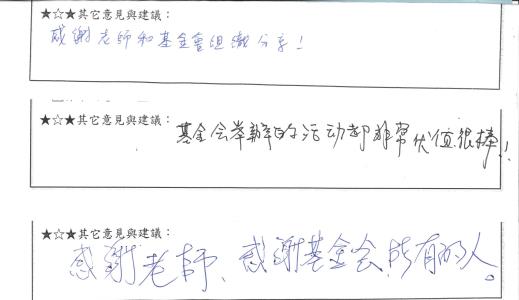 ★☆★其它意見與建議：
感谢老師和基金會組織分享！
★☆★其它意見與建議：
基金会举辦的活动都非常优值很棒!!
★☆★其它意見與建議：
感謝老師、感謝基金会所有的人。